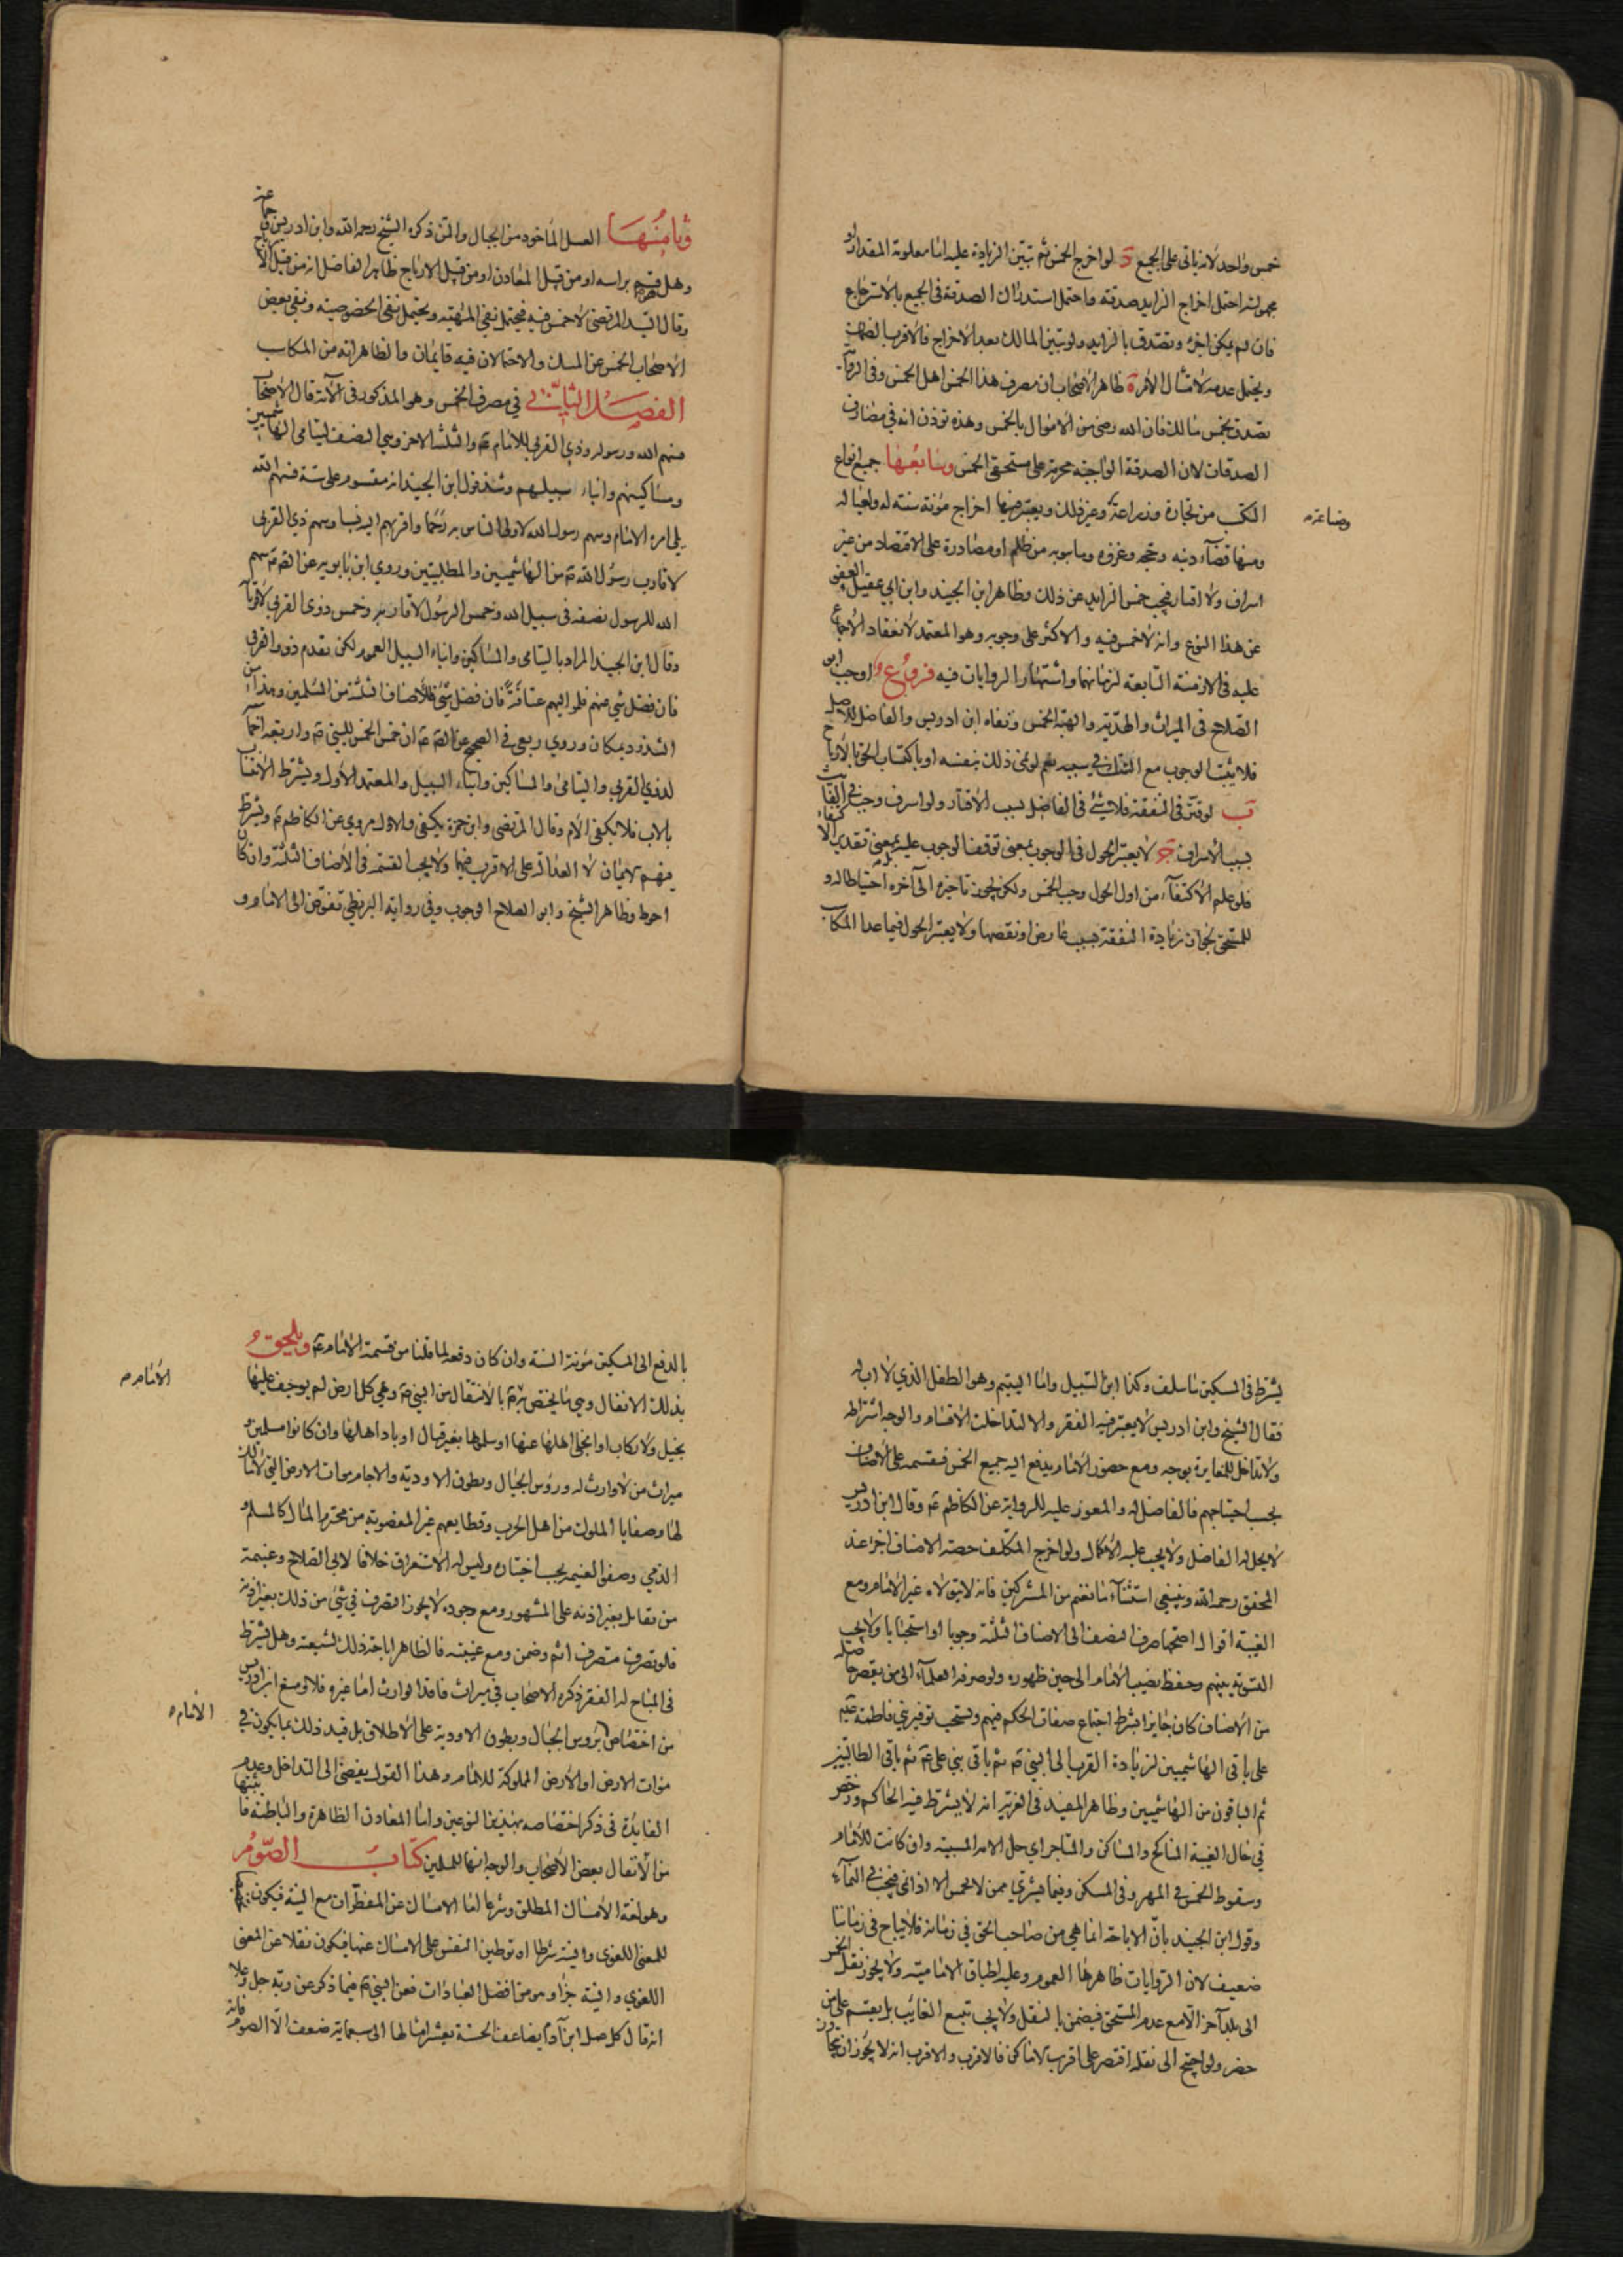 خمس واحد لانه ياتي على الجميع د لو اخرج الخمس ثم تبين الزيادة عليه اما معلومة المقدار او
مجهولته احتمل اخراج الزايد صدقة واحتمل استدراك الصدقة في الجميع بالاسترجاع
فان لم يمكن اجزء وتصدق بالزايد ولو تبين المالك بعد الاخراج فالاقرب الضمان
ويحتمل عدمه لامتثال الامر ة ظاهر الاصحاب ان مصرف هذا الخمس اهل الخمس وفي الرواية
تصدق بخمس مالك فان الله رضي من الاموال بالخمس وهذه توذن انه في مصارف
الصدقات لان الصدقة الواجبة محرمة على مستحقي الخمس وسابعها جميع انواع
التكسب من تجارة وزراعة وغير ذلك ويعتبر فيها اخراج مؤنة سنته له ولعياله
وصناعة
ومنها قضاء دينه وحجه وغزوه وما ينوبه من ظلم او مصادرة على الاقتصاد من غير
اسراف ولا اقتار فيجب خمس الزايد عن ذلك وظاهر ابن الجنيد وابن ابي عقيل العفو
عن هذا النوع وانه لا خمس فيه والاكثر على وجوبه وهو المعتمد لانعقاد الاجماع
عليه في الازمنة التابعة لزمانهما واشتهار الروايات فيه فروع اوجب ابو
الصلاح في الميراث والهدية والهبة الخمس ونفاه ابن ادريس والفاضل للاصل
فلا يثبت الوجوب مع الشك في سببه نعم لو نمى ذلك بنفسه او باكتساب الحق بالارباح
ب لو قتر في النفقة فلا شيء في الفاضل بسبب الاقتار ولو اسرف وجب في الفايت
بسبب الاسراف ج لا يعتبر الحول في الوجوب بمعنى توقف الوجوب عليه بل بمعنى تقدير الاكتفاء
فلو علم الاكتفاء من اول الحول وجب الخمس ولكن يجوز تاخيره الى آخره احتياطا له و
للمستحق لجواز زيادة النفقة بسبب عارض او نقصها ولا يعتبر الحول فيما عدا المكاسب
وثامنها العسل الماخوذ من الجبال والمن ذكره الشيخ رحمه الله وابن ادريس وجماعة
وهل هو قسم براسه او من قبيل المعادن او من قبيل الارباح ظاهر الفاضل انه من قبيل الارباح
وقال السيد المرتضى لا خمس فيه فيحتمل نفي الماهية ويحتمل نفي الخصوصية ونفى بعض
الاصحاب الخمس عن المسك والاحتمالان فيه قايمان والظاهر انه من المكاسب
الفصل الثاني في مصرف الخمس وهو المذكور في الآية قال الاصحاب
سهم الله ورسوله وذي القربى للامام ع والثلثة الاخر وهي النصف ليتامى الهاشميين
ومساكينهم وابناء سبيلهم وشذ قول ابن الجنيد انه مقسوم على ستة فسهم الله
يلي امره الامام وسهم رسول الله لاولى الناس به رحما واقربهم اليه نسبا وسهم ذي القربى
لاقارب رسول الله ص من الهاشميين والمطلبيين وروى ابن بابويه عن الصادق ع سهم
الله للرسول نصفه في سبيل الله وخمس الرسول لاقاربه وخمس ذوى القربى لاقربائه
وقال ابن الجنيد المراد باليتامى والمساكين وابناء السبيل العموم لكن تقدم ذووا القربى
فان فضل شي منهم فلمواليهم عتاقة فان فضل شيء فللاصناف الثلثة من المسلمين وهذا من
الشذوذ بمكان وروى ربعي في الصحيح عن الصادق ع ان خمس الخمس للنبي ص واربعة اخماس
لذوي القربى واليتامى والمساكين وابناء السبيل والمعتمد الاول ويشترط الانتساب
بالاب فلا يكفى الام وقال المرتضى وابن حمزة يكفى والاول مروي عن الكاظم ع ويشترط
فيهم الايمان لا العدالة على الاقرب فيهما ولا يجب القسمة في الاصناف الثلثة وان كان
احوط وظاهر الشيخ وابو الصلاح الوجوب وفي رواية البزنطي تفوض الى الامام و
يشترط في المسكين ما سلف وكذا ابن السبيل واما اليتيم وهو الطفل الذي لا اب له
فقال الشيخ وابن ادريس لا يعتبر فيه الفقر والا لتداخلت الاقسام والوجه اشتراطه
ولا تداخل للمغايرة بوجه ومع حضور الامام يدفع اليه جميع الخمس فيقسمه على الاصناف
بحسب احتياجهم فالفاضل له والمعوز عليه للرواية عن الكاظم ع وقال ابن ادريس
لا يحل له الفاضل ولا يجب عليه الاكمال ولو اخرج المكلف حصة الاصناف اجزا عند
المحقق رحمه الله وينبغي استثناء ما نغنم من المشركين فانه لا يتولاه غير الامام ومع
الغيبة اقوال اصحها صرف النصف الى الاصناف الثلثة وجوبا او استحبابا ولا يجب
التسوية بينهم وحفظ نصيب الامام الى حين ظهوره ولو صرفه العلماء الى من يقصر حاصله
من الاصناف كان جايزا بشرط اجتماع صفات الحكم فيهم ويستحب توفير بني فاطمة عليهم
على باقي الهاشميين لزيادة القرب الى النبي ص ثم باقي بني علي ع ثم باقي الطالبيين
ثم الباقون من الهاشميين وظاهر المفيد في الغرية انه لا يشترط فيه الحاكم ورخص
في حال الغيبة المناكح والمساكن والمتاجر اي حل الامة المسبية وان كانت للامام
وسقوط الخمس في المهر وفي المسكن وفيما يشتري ممن لا يخمس الا اذا نمى فيجب في النماء
وقول ابن الجنيد بان الاباحة انما هي من صاحب الحق في زمانه فلا يباح في زماننا
ضعيف لان الروايات ظاهرها العموم وعليه اطباق الامامية ولا يجوز نقل الخمس
الى بلد آخر الا مع عدم المستحق فيضمن بالنقل ولا يجب تتبع الغايب بل يقسم على من
حضر ولو احتيج الى نقله اقتصر على اقرب الاماكن فالاقرب والاقرب انه لا يجوز ان يتجاوز
بالدفع الى المسكين مؤنة السنة وان كان دفعه لما قلنا من قسمة الامام ع ويلحق
الامام
بذلك الانفال وهي ما يختص به ع بالانتقال من النبي ص وهي كل ارض لم يوجف عليها
بخيل ولا ركاب او انجلى اهلها عنها او سلموها بغير قتال او باد اهلها وان كانوا مسلمين و
ميراث من لا وارث له ورؤس الجبال وبطون الاودية والاجام وموات الارض التي لا مالك
لها وصفايا الملوك من اهل الحرب وقطايعهم غير المغصوبة من محترم المال كالمسلم و
الذمي وصفو الغنيمة بحسب اختياره وليس له الاستغراق خلافا لابي الصلاح وغنيمة
من يقاتل بغير اذنه على المشهور ومع وجوده لا يجوز التصرف في شيء من ذلك بغير اذنه
فلو تصرف متصرف اثم وضمن ومع غيبته فالظاهر اباحة ذلك لشيعته وهل يشترط
في المباح له الفقر ذكره الاصحاب في ميراث فاقد الوارث اما غيره فلا ومنع ابن ادريس
الامام
من اختصاص برؤس الجبال وبطون الاودية على الاطلاق بل قيد ذلك بما يكون في
موات الارض او الارض المملوكة للامام وهذا القول يفضى الى التداخل وعدم
الفايدة في ذكر اختصاصه بهذين النوعين واما المعادن الظاهرة والباطنة فاثبتها
من الانفال بعض الاصحاب والوجه انها للمسلمين كتاب الصوم
وهو لغة الامساك المطلق وشرعا اما الامساك عن المفطرات مع النية فيكون
للمعنى اللغوى والنية شرطا او توطين النفس على الامساك عنها فيكون نقلا عن المعنى
اللغوي والنية جزءا وهو من افضل العبادات فعن النبي ص فيما ذكر عن ربه جل وعلا
انه قال كل عمل ابن آدم يضاعف الحسنة بعشر امثالها الى سبعماية ضعف الا الصوم فانه